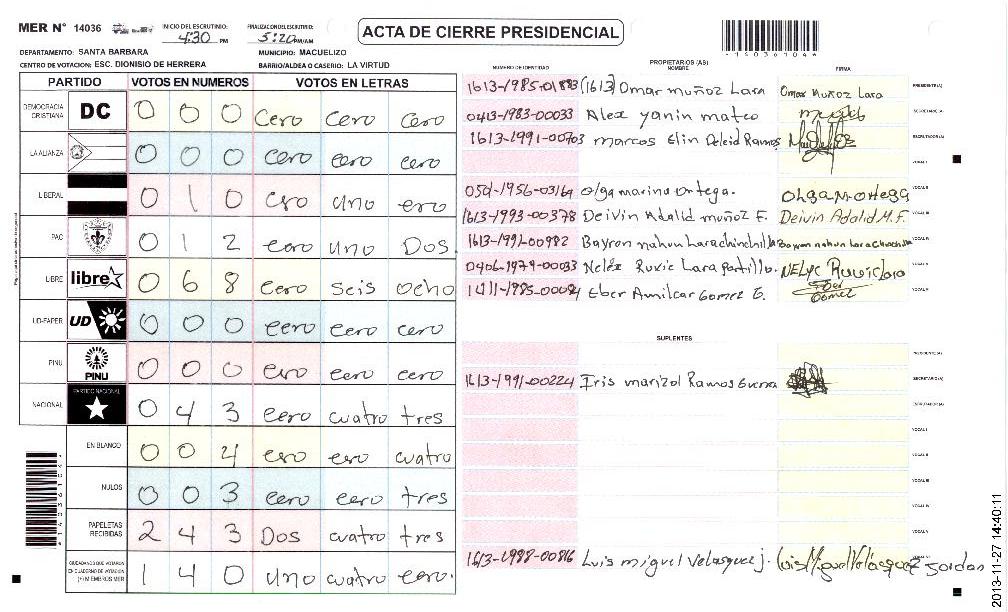 MER N° 14036 INICIO DEL ESCRUTINIO: 4:30 PM FINALIZACION ESCRUTINIO: 5:20 PM/AM ACTA DE CIERRE PRESIDENCIAL
DEPARTAMENTO: SANTA BARBARA MUNICIPIO: MACUELIZO
CENTRO DE VOTACION: ESC. DIONISIO DE HERRERA BARRIO/ALDEA O CASERIO: LA VIRTUD
PARTIDO VOTOS EN NUMEROS VOTOS EN LETRAS
DEMOCRACIA CRISTIANA DC 0 0 0 Cero Cero Cero
LA ALIANZA 0 0 0 cero cero cero
LIBERAL 0 1 0 cro uno ero
PAC 0 1 2 cero uno Dos.
LIBRE libre 0 6 8 cero seis ocho
UD-FAPER UD 0 0 0 cero cero cero
PINU PINU 0 0 0 cero cero cero
NACIONAL PARTIDO NACIONAL 0 4 3 cero cuatro tres
EN BLANCO 0 0 4 ero ero cuatro
NULOS 0 0 3 cero cero tres
PAPELETAS RECIBIDAS 2 4 3 Dos cuatro tres
CIUDADANOS QUE VOTARON EN CUADERNO DE VOTACION (+) MIEMBROS MER 1 4 0 uno cuatro cero.
PROPIETARIOS (AS)
NUMERO DE IDENTIDAD NOMBRE FIRMA
1613-1985-01883 (1613) Omar muñoz Lara Omar Muñoz Lara PRESIDENTE(A)
0413-1983-00033 Alex yanin mateo SECRETARIO(A)
1613-1991-00703 marcos Elin Deleid Ramos ESCRUTADOR(A)
VOCAL I
0501-1956-03169 Olga marina Ortega. Olga M. Ortega VOCAL II
1613-1993-00378 Deivin Adalid muñoz F. Deivin Adalid M.F. VOCAL III
1613-1991-00982 Bayron nahun Larachinchilla Bayron nahun Larachinchilla VOCAL IV
0406-1979-00033 Nelex Ruvic Lara Portillo. VOCAL V
1411-1985-00084 Eber Amilcar Gomez E. Eber Gomez
SUPLENTES
PRESIDENTE(A)
1613-1991-00224 Iris marizol Ramos Guerra SECRETARIO(A)
ESCRUTADOR(A)
VOCAL I
VOCAL II
VOCAL III
VOCAL IV
VOCAL V
1613-1988-00816 Luis miguel Velasquez j. Luis Miguel Velásquez Jordan
2013-11-27 14:40:11